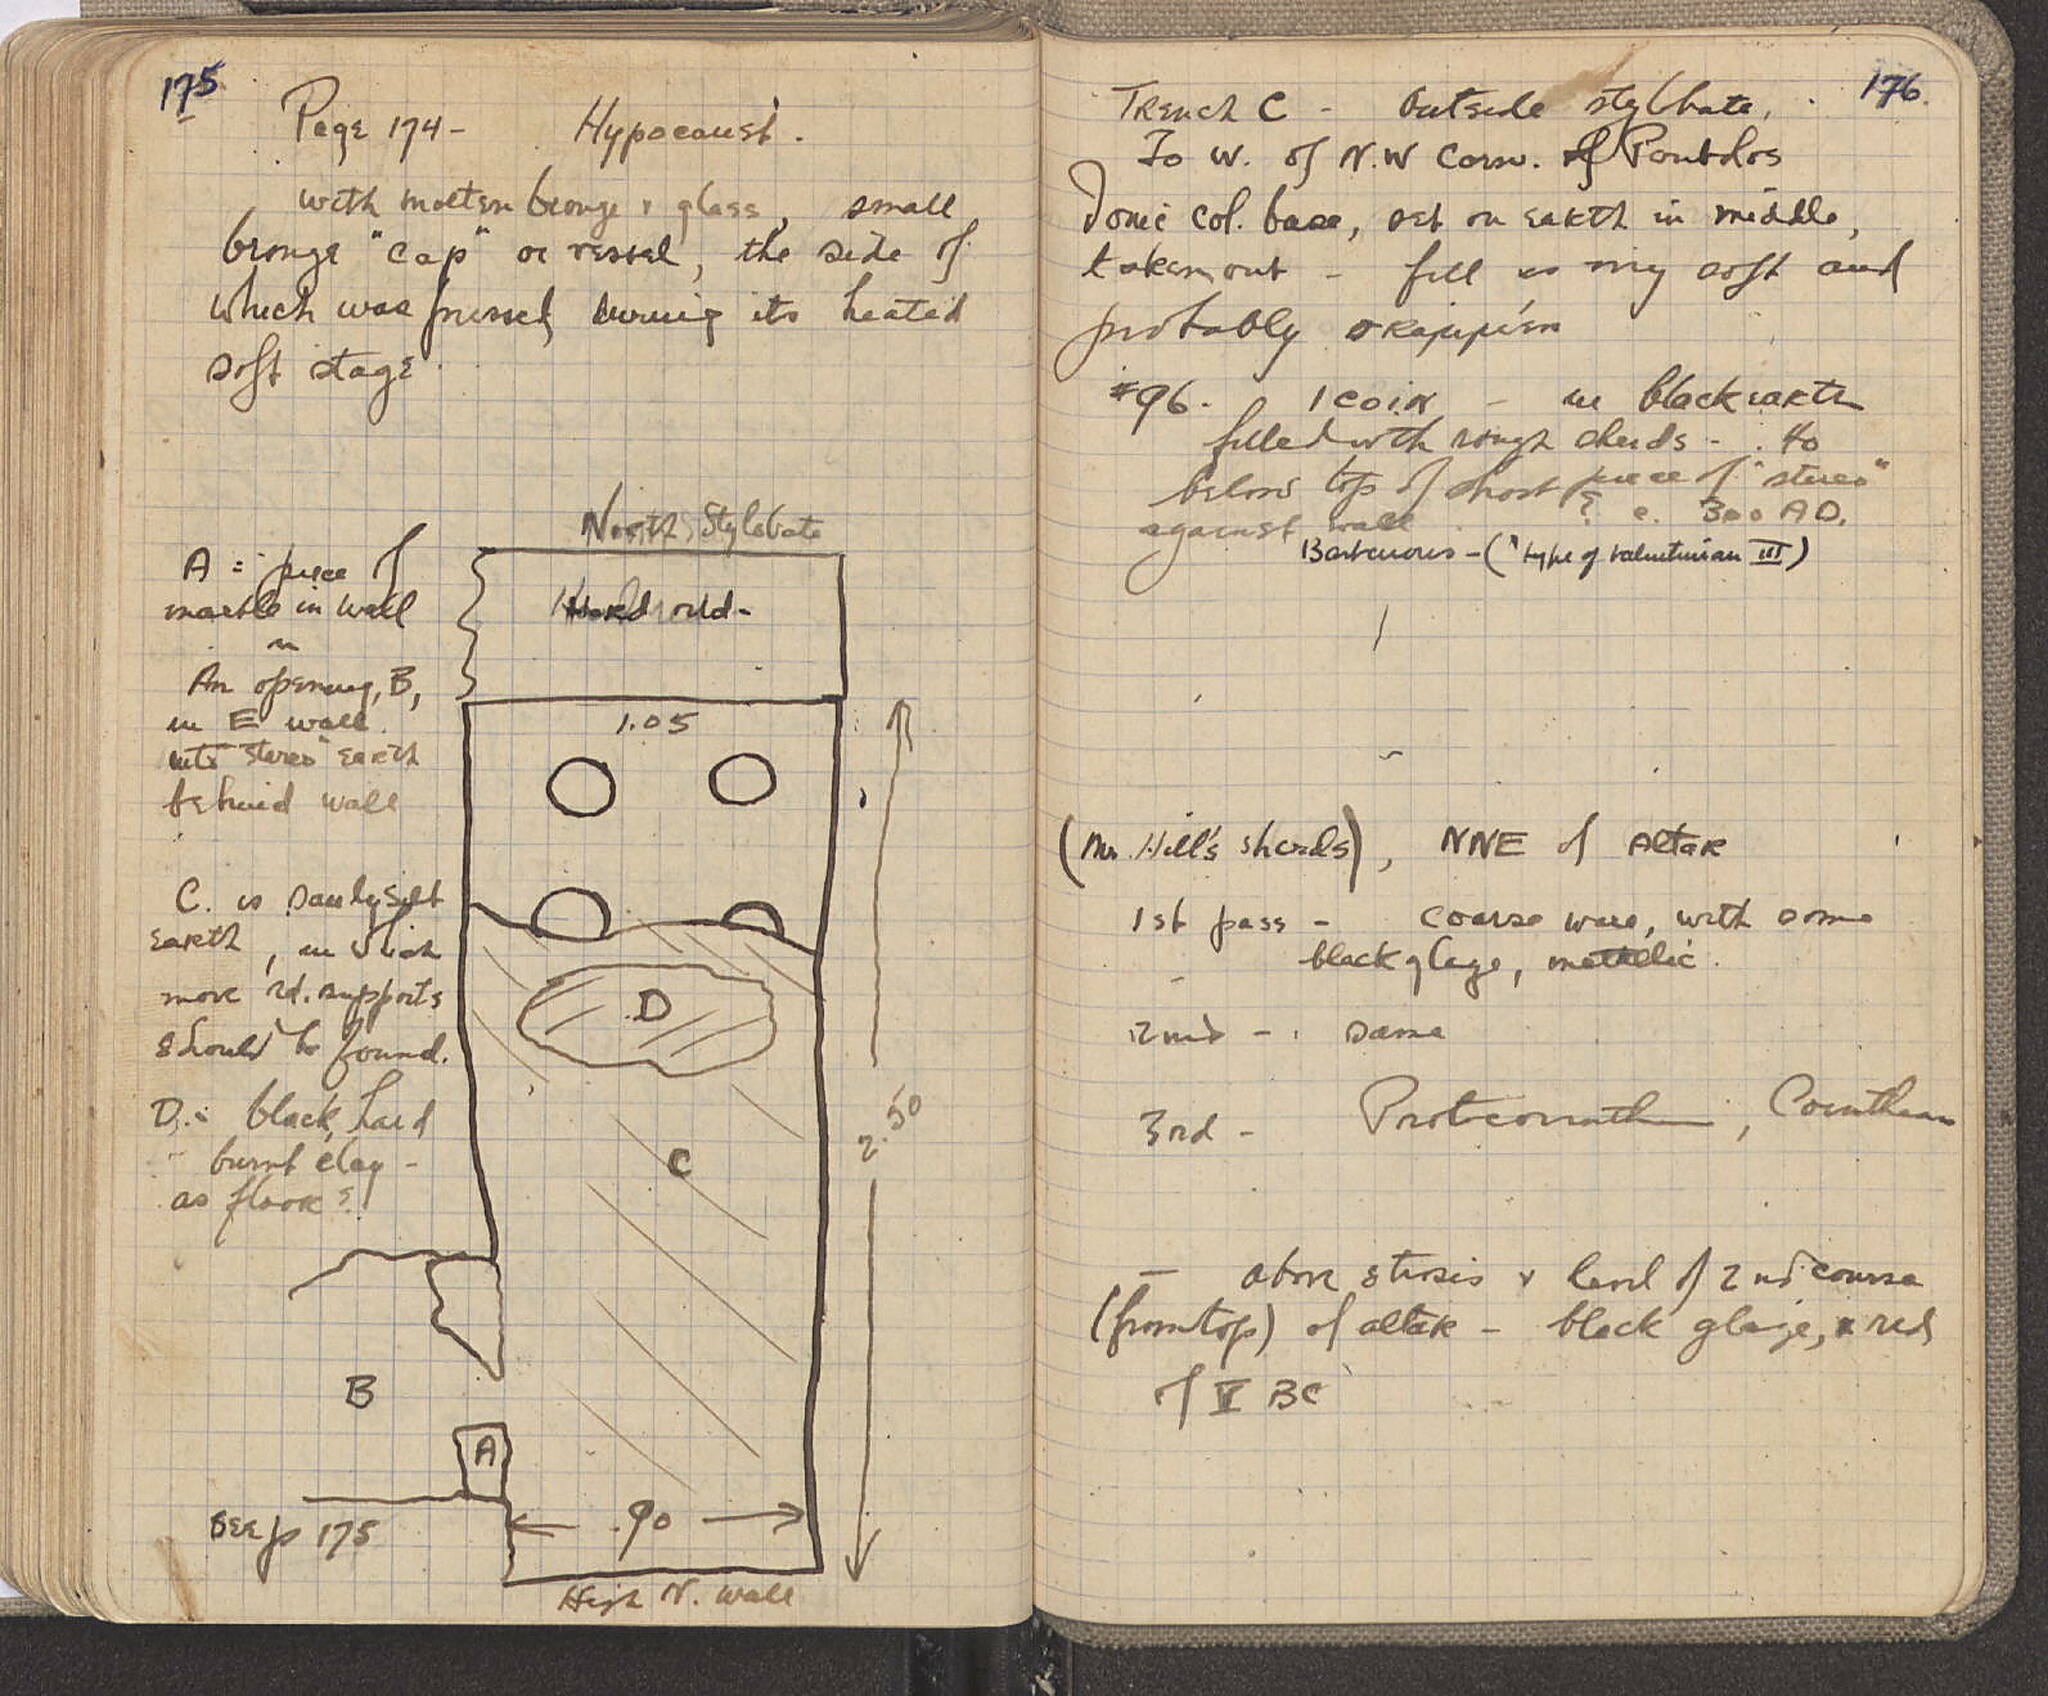 175
Page 174 - Hypocaust.
with molten bronze & glass, small
bronze "cap" or vessel, the side of
which was pressed during its heated
soft stage.
North Stylobate
Hard orld-
A = piece of
marble in wall
An opening, B,
in E wall
into "stereo" earth
behind wall
C. is sandy silt
earth, in which
more rd. supports
should be found.
D. = black, hard
burnt clay -
as floor?!
1.05
D
C
2.50
B
A
.90
See p 175
High N. wall
176
Trench C - Outside stylobate,
To W. of N.W Corn. of
Ionic col. base, set on earth in middle,
taken out - fill is my soft and
probably
#96. 1 coin - in black earth
filled with rough sherds - to
below top of short piece of "stereo"
against wall ? c. 300 AD.
Barbarous - ("type of Valentinian III)
(Mr. Hill's sherds), NNE of Altar
1st pass - coarse ware, with some
black glaze, metallic.
2nd - same
3rd - Protocorinth, Corinthian
- above strosis & level of 2nd course
(from top) of altar - black glaze, & red
of V BC